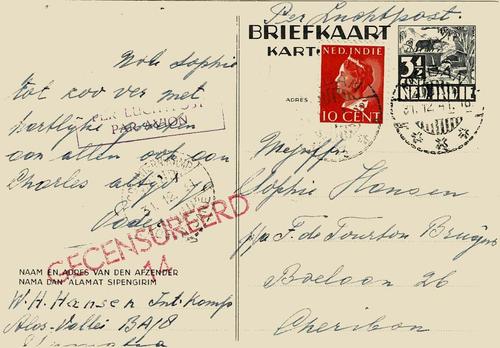 Per Luchtpost.
BRIEFKAART
KART
ADRES
NED. INDIE
10 CENT
3½
NED. INDIE
31.12.41.18
Sophie
tot zoo ver met
hartlijke groeten
aan allen ook aan
Charles altyd je
PER LUCHTPOST
PAR AVION
31.12
GECENSUREERD
14
NAAM EN ADRES VAN DEN AFZENDER
NAMA DAN ALAMAT SIPENGIRIM
W. H. Hansen Int. Kamp
Alas-Vallei BA18
Mejuffr.
Sophie Hansen
p/a F. de Tourton Bruyns
26
Cheribon